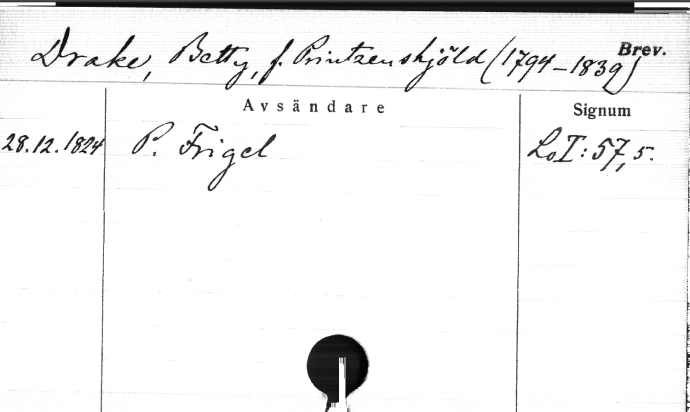 Drake, Betty, f. Printzenskjöld (1794-1839) Brev.
Avsändare Signum
28.12.1824 P. Frigel LoI:57,5.